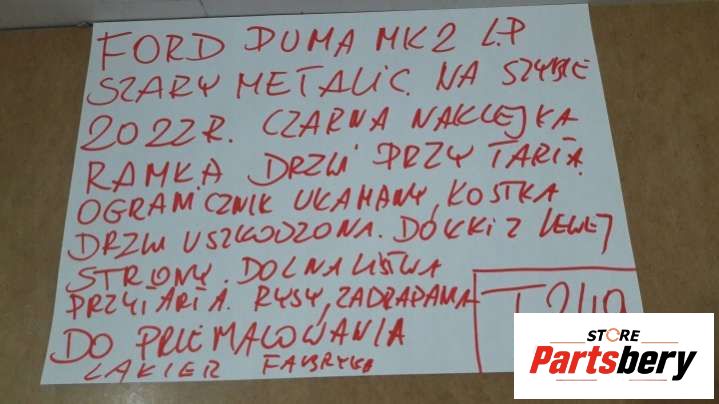 FORD PUMA MK2 L.P
SZARY METALIC. NA SZYBIE
2022R. CZARNA NAKLEJKA
RAMKA DRZWI PRZYTARTA.
OGRANICZNIK UŁAMANY, KOSTKA
DRZWI USZKODZONA. DOŁKI Z LEWEJ
STRONY. DOLNA LISTWA
PRZYTARTA. RYSY, ZADRAPANIA
DO PRZEMALOWANIA
LAKIER FABRYKA
STORE
Partsbery